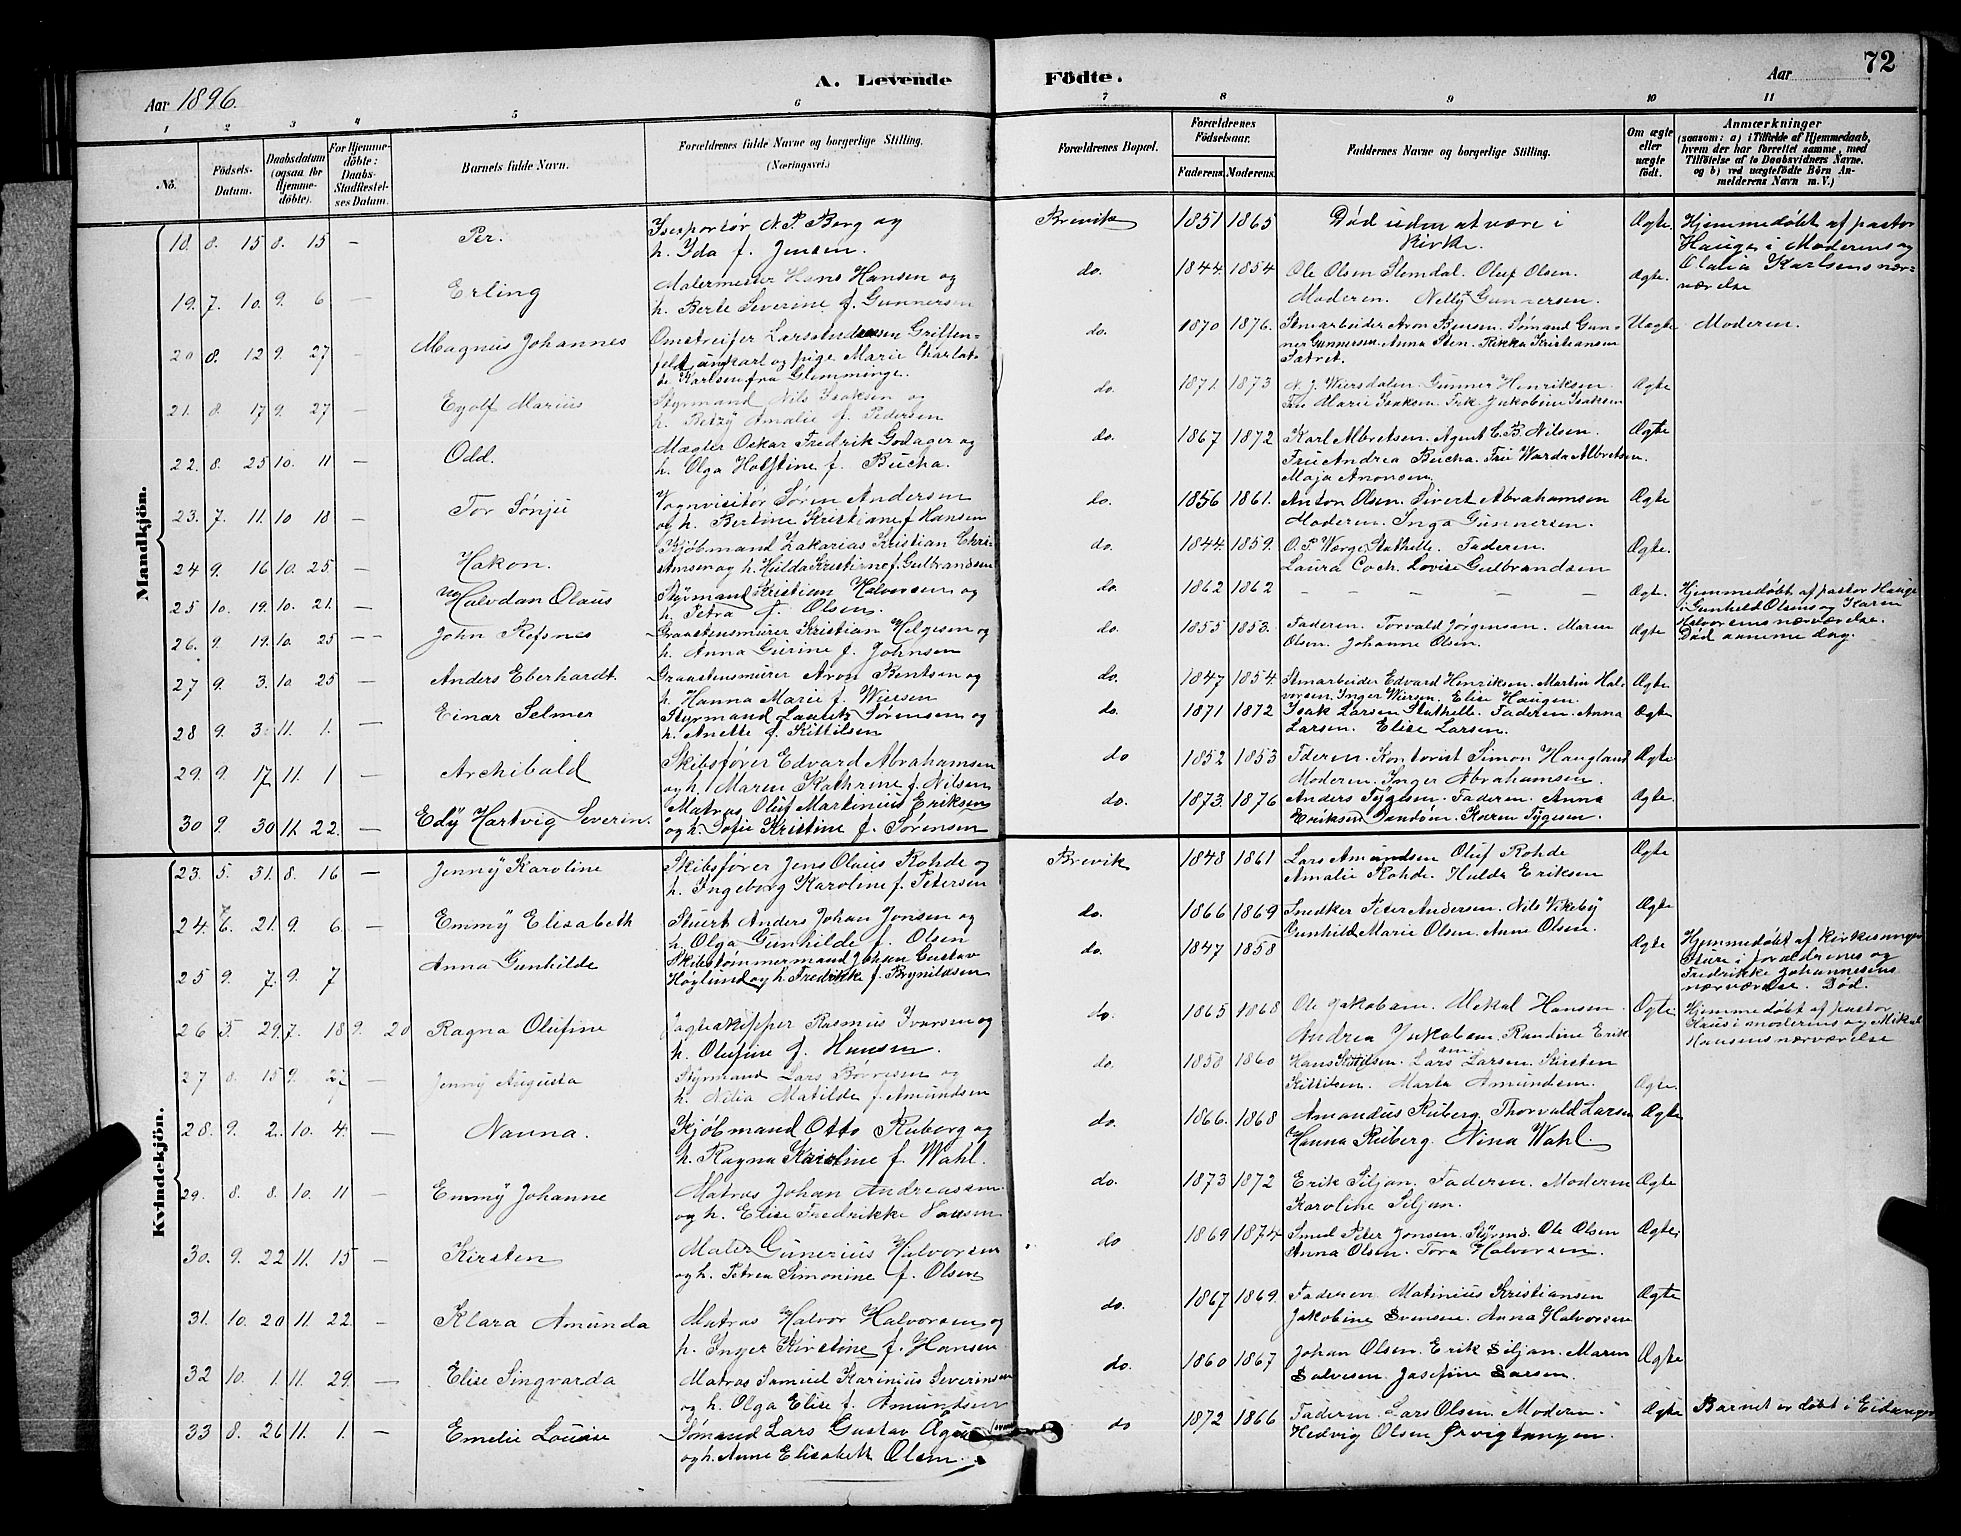 72
Aar 1896.
A. Levende Födte.
Aar
1 2 3 4 5 6 7 8 9 10 11
No.
Födsels-Datum.
Daabsdatum (ogsaa for Hjemme-döbte).
For Hjemme-döbte: Daabs-Stadfæstel-ses Datum.
Barnets fulde Navn.
Forældrenes fulde Navne og borgerlige Stilling. (Næringsvei.)
Forældrenes Bopæl.
Forældrenes Födselsaar.
Faderens. Moderens.
Faddernes Navne og borgerlige Stilling.
Om ægte eller uægte födt.
Anmærkninger
(saasom: a) i Tilfælde af Hjemmedaab, hvem der har forrettet samme, med Tilföielse af to Daabsvidners Navne, og b) ved uægtefödte Börn An-melderens Navn m. V.)
Mandkjön.
18. 8. 15 8. 15 — Per. N. P. Berg og h. Ida f. Jensen. Brevik 1851 1865 Död uden at være i Kirke. Ægte. Hjemmedöbt af pastor Hauge i Moderens og Olalia Karlsens nær-værelse
19. 7. 10. 9. 6 — Erling Malermester Hans Hansen og h. Berte Severine f. Gunnersen do. 1844. 1854 Ole Olsen Stemdal. Oluf Olsen. Moderen. Nelly Gunnersen. Ægte.
20 8. 12 9. 27 — Magnus Johannes Omstreifer og pige Marie Charlot-te Karlsen fra Glemminge. do. 1870 1876. Stenarbeider Aron Bensen. Sømand Gun-ner Gunnersen Anna Sten. Rikka Kristiansen Uægte Moderen.
21. 8. 17 9. 27 — Egolf Marius Styrmand Nils Isaksen og h. Betzy Amalie f. Pedersen do. 1871. 1873 N. J. Wiersdalen. Gunner Henriksen. Marie Isaksen. Frk. Jakobine Isaksen Ægte
22. 8. 25 10. 11 — Odd. Mægler Oskar Fredrik Godager og h. Olga Holstine f. Bucha. do. 1867 1872 Karl Albretsen. Agent C. B. Nilsen. Frue Andrea Bucha. Fru Warda Albretsen. Maja Aronsen. Ægte
23. 7. 11. 10 18 — Tor Sønju Vognvisitør Søren Andersen og h. Bertine Kristiane f. Hansen do. 1856 1861. Anton Olsen. Sivert Abrahamsen Moderen. Inga Gunnersen. Ægte
24 9. 16 10. 25 — Hakon. Kjøbmand Zakarias Kristian Chri-stensen og h. Hulda Kristine f. Gulbrandsen do. 1844. 1859. O. P. Wærge Stathelle. Faderen. Laura Coch. Lovise Gulbrandsen Ægte.
25 10. 19. 10. 21. — Halvdan Olaus Styrmand Kristian Halvorsen og h. Petra f. Olsen. do. 1862 1862 — — — — — Ægte. Hjemmedöbt af pastor Hauge i Gunhild Olsens og Karen Halvorsens nærværelse. Död samme dag.
26. 9. 19. 10. 25 — John Refsnes Graastensmurer Kristian Helgesen og h. Anna Gurine f. Johnsen do. 1855 1853. Faderen. Torvald Jørgensen. Maren Olsen. Johanne Olsen. Ægte
27 9. 3. 10. 25 — Anders Eberhardt. Graastensmurer Aron Bentsen og h. Hanna Marie f. Wiersen do. 1847 1854. Stenarbeider Edvard Henriksen. Martin Hal-vorsen. Inger Wiersen. Elise Haugen. Ægte
28 9. 3. 11. 1. — Einar Selmer Styrmand Lauritz Sørensen og h. Anette f. Kittilsen do. 1871 1872 Isak Larsen Stathelle. Faderen. Anna Larsen. Elise Larsen. Ægte
29. 9. 17 11. 1 — Archibald Skibsfører Edvard Abrahamsen og h. Maren Kathrine f. Nilsen do 1852 1853 Simon Haugland Moderen. Inger Abrahamsen. Ægte
30 9. 30 11. 22. — Edy Hartvig Severin. Matros Oluf Martinius Eriksen og h. Sofie Kristine f. Sørensen do. 1873. 1876 Anders Tygesen. Faderen. Anna Eriksen Karen Tygesen. Ægte.
Kvindekjön.
23. 5. 31. 8. 16 — Jenny Karoline Skibsfører Jens Olaus Rohde og h. Ingeborg Karoline f. Petersen Brevik 1848 1861 Lars Amundsen Oluf Rohde Amalie Rohde. Hulda Eriksen Ægte
24. 6. 21. 9. 6 — Emmy Elisabeth Stuert Anders Johan Jonsen og h. Olga Gunhilde f. Olsen do. 1866 1869 Snedker Peter Andersen. Nils Vikeby Gunhild Marie Olsen. Anne Olsen. Ægte
25 9. 7. 9. 7 Anna Gunhilde Skibstømmermand Johan Gustav Høglund og h. Fredrikke f. Brynildsen do. 1847 1858 Ægte Hjemmedöbt af kirkesanger Sture i forældrenes og Fredrikke Johannesens nærværelse. Död.
26 5 29. 7. 18 9. 20 Ragna Olufine Jagteskipper Rasmus Ivarsen og h. Olufine f. Hansen. do. 1865 1868 Ole Jakobsen. Mekal Hansen Andrea Jakobsen. Randine Erik Ægte. Hjemmedöbt af pastor Haus i moderens og Mikal Hansens nærværelse
27 8. 15 9. 27 — Jenny Augusta Styrmand Lars Børresen og h. Nilia Matilde f. Amundsen do. 1858 1860 Hans Kittilsen. Lars Larsen. Kirsten Kittilsen. Marta Amundsen. Ægte.
28. 9. 2. 10. 4. — Nanna. Kjøbmand Otto Ruberg og h. Ragna Karoline f. Wahl. do. 1866. 1868 Amandus Ruberg. Thorvald Larsen Hanna Ruberg. Nina Wahl. Ægte
29. 8. 8. 10. 11 — Emmy Johanne Matros Johan Andreassen og h. Elise Fredrikke Hansen do. 1873 1872 Erik Siljan. Faderen. Moderen Karoline Siljan. Ægte
30. 9. 22 11. 15 — Kirsten Maler Gunerius Halvorsen og h. Petrea Simonine f. Olsen do 1869 1874 Smed Peter Jonsen. Styrmd. Ole Olsen Anna Olsen. Tora Halvorsen. Ægte.
31. 10. 20 11. 22. — Klara Amunda Matros Halvor Halvorsen og h. Inger Kirstine f. Hansen do. 1867 1869. Faderen. Matinius Kristiansen Jakobine Svensen. Anna Halvorsen Ægte
32 10. 1. 11. 29. — Elise Singvarda Matros Samuel Karinius Severinsen og h. Olga Elise f. Amundsen do. 1860 1867 Johan Olsen. Erik Siljan. Maren Salvesen. Josefine Larsen. Ægte
33 8. 26 11. 1. — Emelie Louise Sømand Lars Gustav og h. Anne Elisabeth Olsen. do 1872 1866 Faderen. Lars Olsen. Moderen. Hedvig Olsen Ørvigtangen. Ægte Barnet er døbt i Eidanger